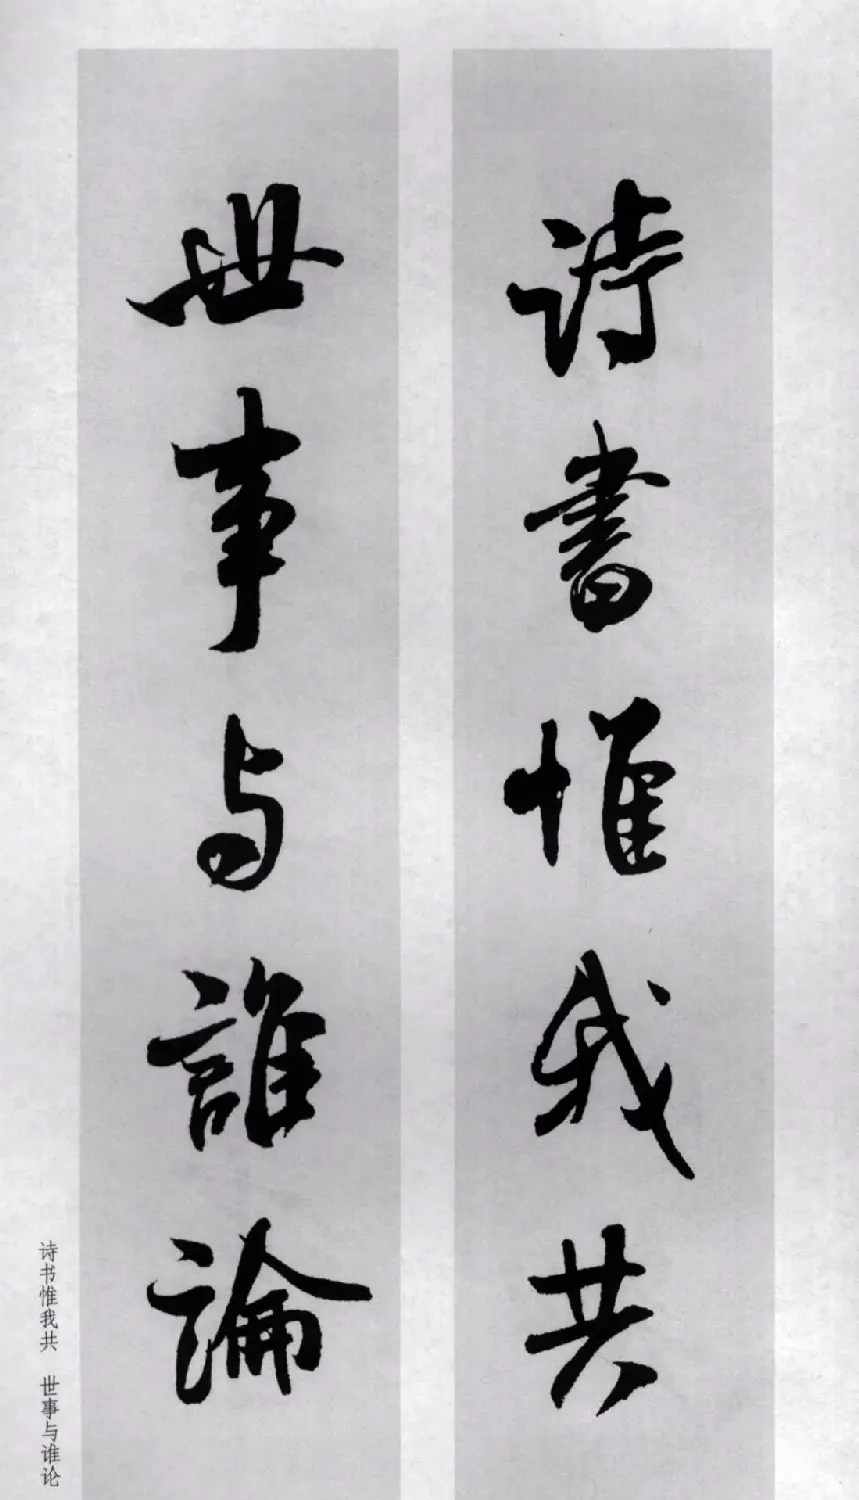 詩書惟我共
世事与誰論
诗书惟我共　世事与谁论